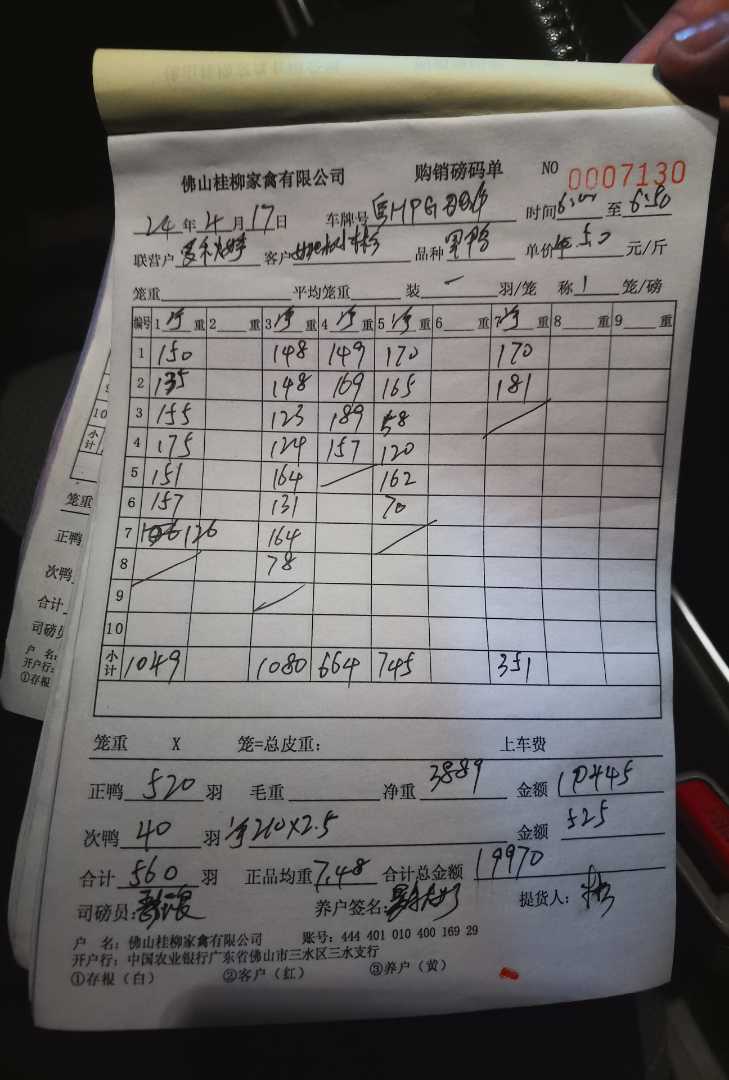 佛山桂柳家禽有限公司 购销磅码单 NO 0007130
24年4月17日 车牌号 HPG 时间6:00至6:50
联营户 客户 品种 黑鸭 单价 5.50 元/斤
笼重 平均笼重 装 一 羽/笼 称 1 笼/磅
编号 1 净 重 2 重 3 净 重 4 净 重 5 净 重 6 重 7 净 重 8 重 9 重
1 150 148 149 170 170
2 135 148 169 165 181
3 155 123 189 58
4 175 124 157 120
5 151 164 162
6 157 131 70
7 126 164
8 78
9
10
小计 1049 1080 664 745 351
笼重 X 笼=总皮重: 上车费
正鸭 520 羽 毛重 净重 3889 金额 19445
次鸭 40 羽 净210×2.5 金额 525
合计 560 羽 正品均重 7.48 合计总金额 19970
司磅员: 养户签名: 提货人:
户 名: 佛山桂柳家禽有限公司 账号: 444 401 010 400 169 29
开户行: 中国农业银行广东省佛山市三水区三水支行
①存根(白) ②客户(红) ③养户(黄)
10
小计
笼重
正鸭
次鸭
合计
司磅员
户 名:
开户行:
①存根